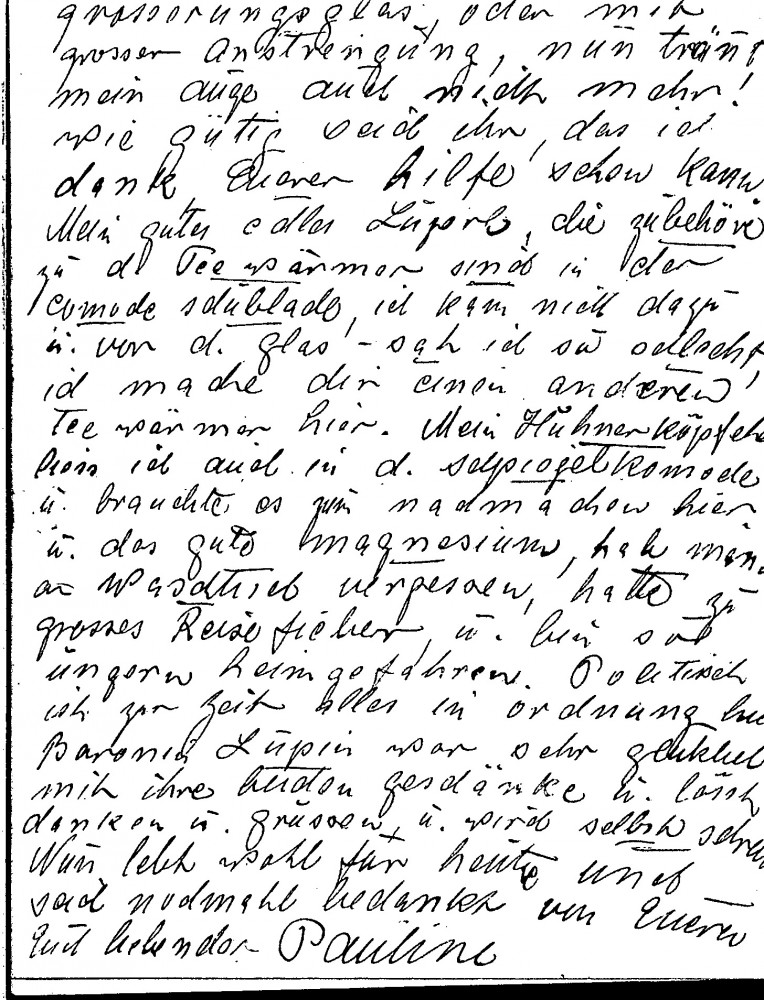 grösserungsglas, oder mit
grosser anstrengung, nun tränt
mein auge auch nicht mehr!
wie gütig seid ihr, das ich
dank Euerer hilfe schon kann
Mein gutes edles Lüperl, die zubehöre
zu d. Teewärmer sind in der
comode schublade, ich kam nicht dazu
u. von d. glas – sah ich so schlecht,
ich mache dir einen anderen
Teewärmer hier. Mein Hühnerköpfche
liess ich auch in d. schpiegelkomode
u. brauchte es zum nachmachen hier
u. das gute magnesium, hab
Waschtisch vergessen, hatte zu
grosses Reisefieber, u. bin so
ungern heimgefahren. Politisch
ist zur Zeit alles in ordnung
Baronin Lüpin war sehr
mit ihre beiden geschänke u. lässt
danken u. grüssen, u. wird selbst
Nun lebt wohl für heute und
seid nochmahl bedankt von Euerer
Euch liebender Pauline